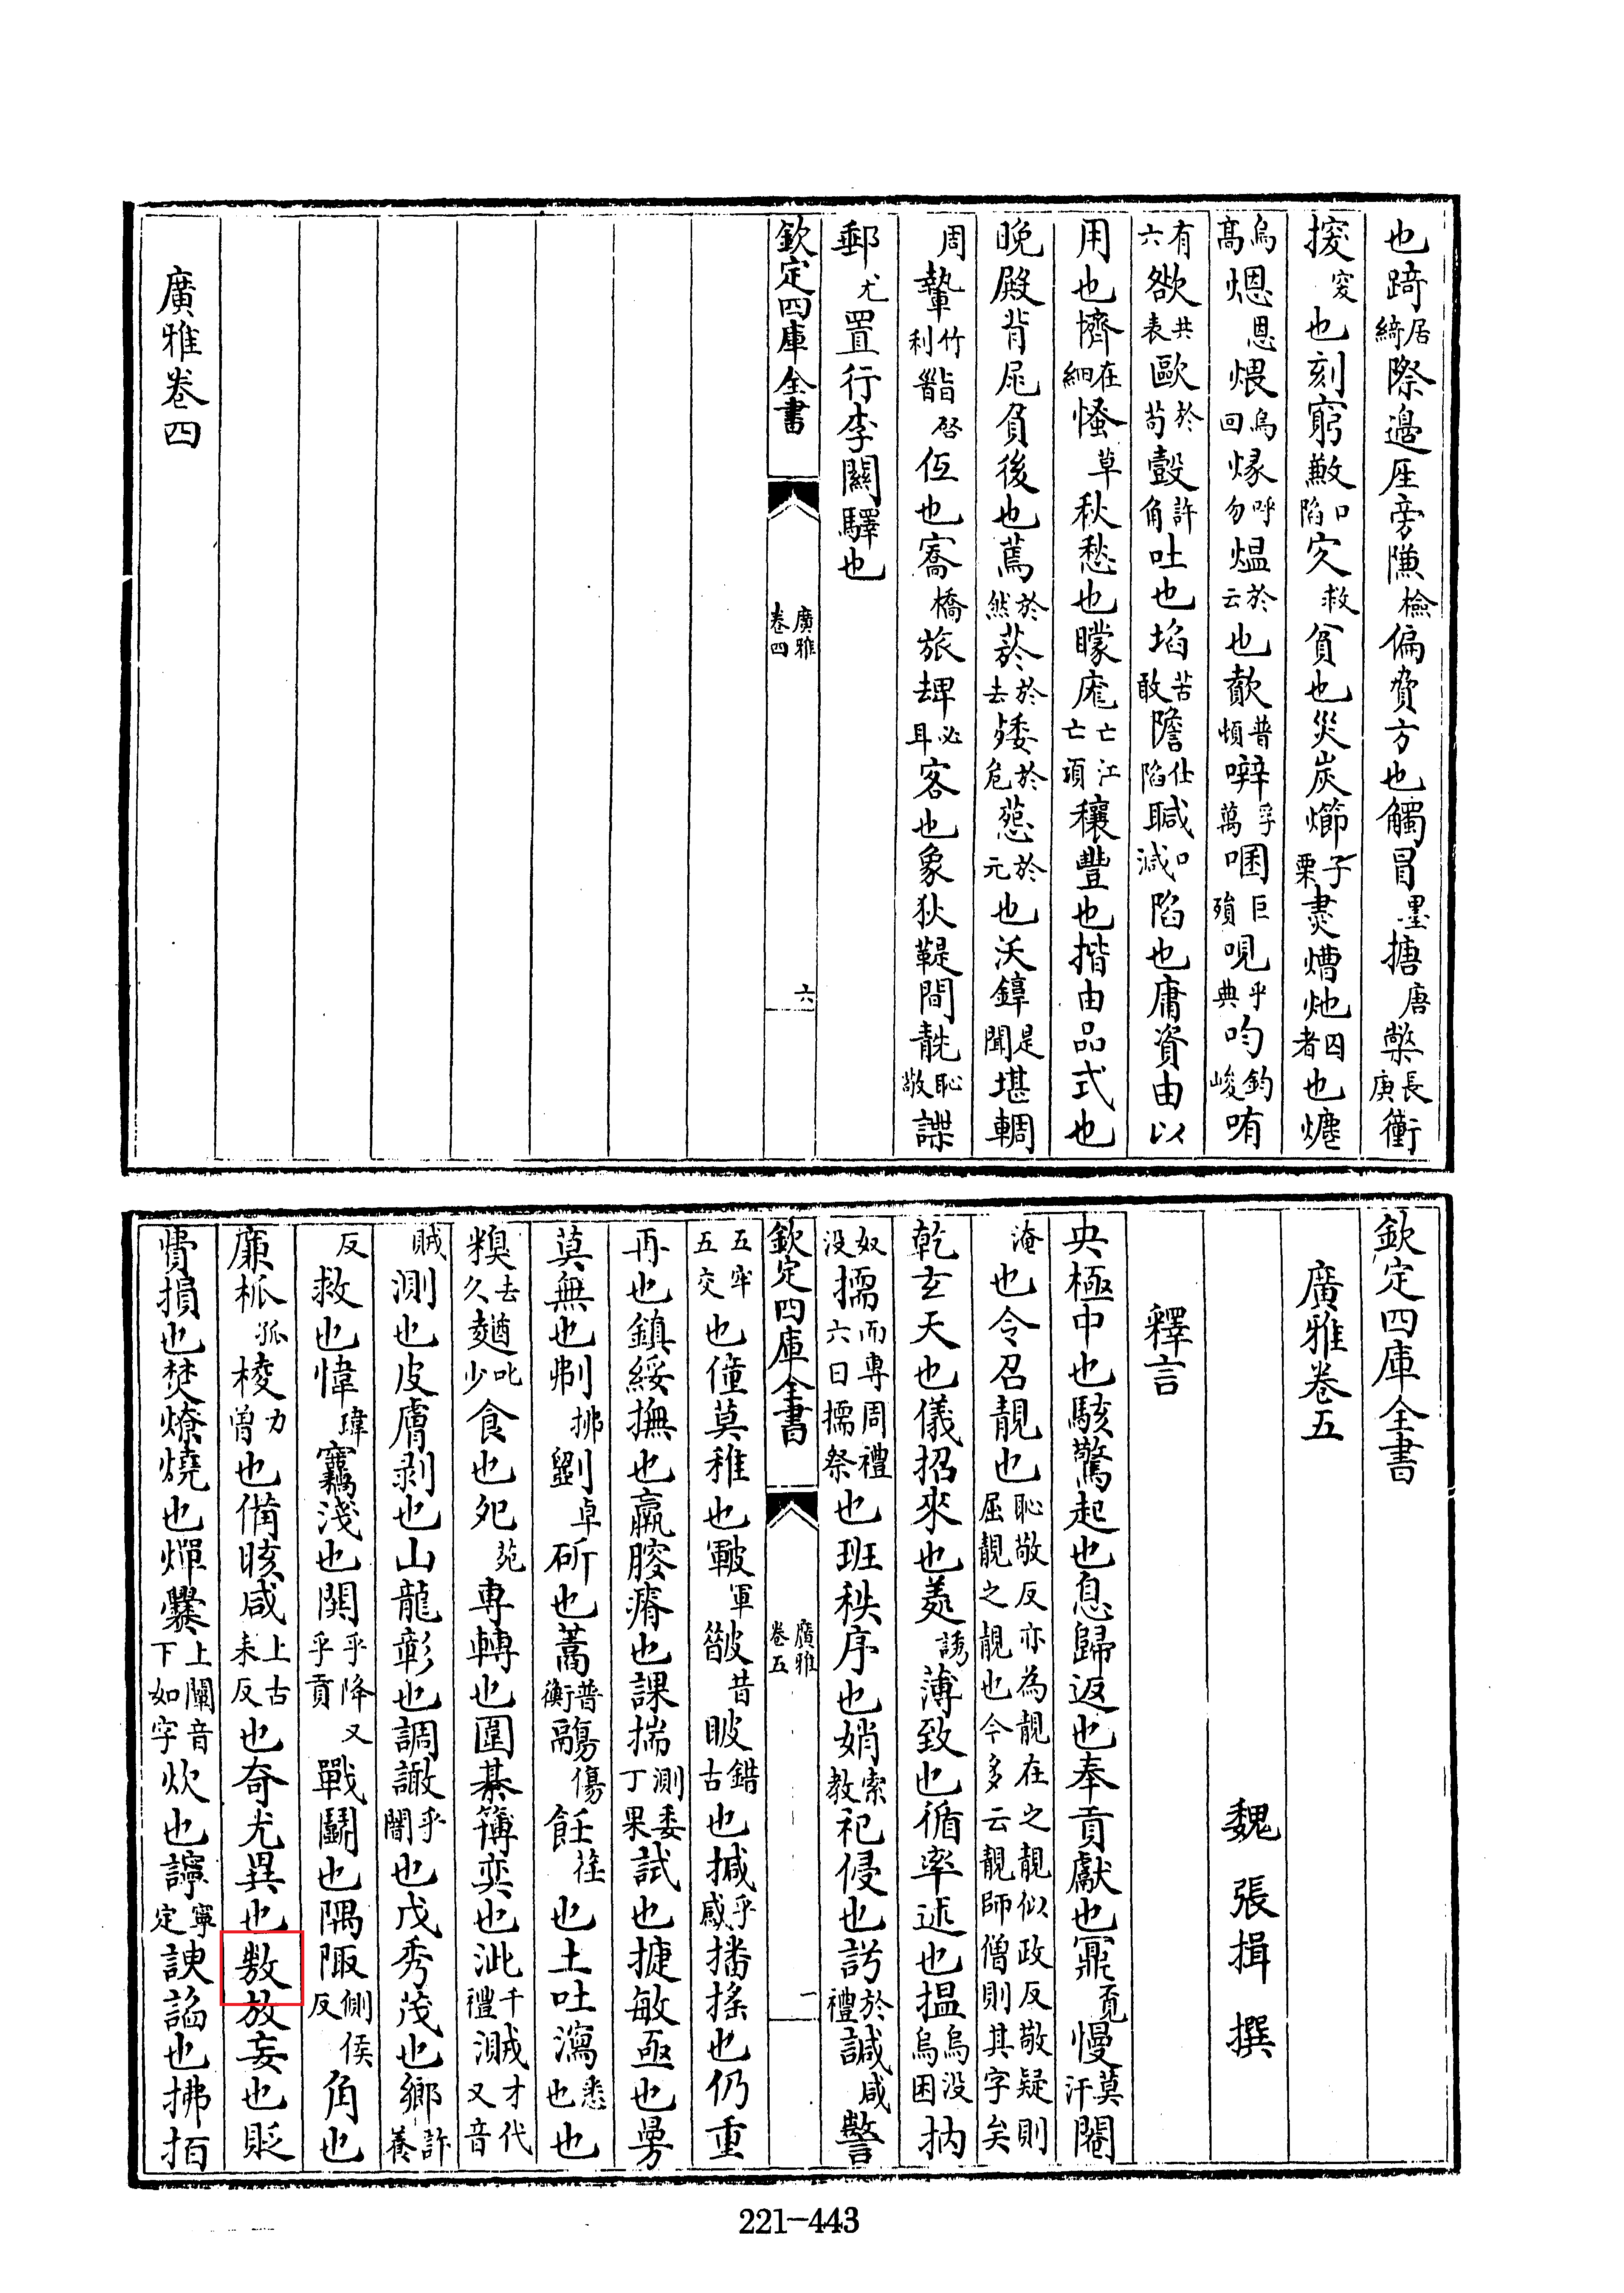 也踦居綺際邊厓旁隒檢偏賓方也觸冒墨搪唐㯑長庚衝
揬突也刻窮歉口陷㝌救貧也災炭㸅子栗㶳熸灺囚者也熝
烏高煾恩煨烏回㷄呼勿熅於云也歕普頓噼孚萬㖥巨殞哯乎典呁鈞峻哊
有六欲共表歐於苟㱿許角吐也埳苦敢䧪仕陷䶢口減陷也庸資由以
用也懠在細慅草秋愁也矇庬亡江亡項穰豐也揩由品式也
晚殿背㞑負後也蔫於然菸於去矮於危葾於元也沃錞是聞堪輖
周䡹竹利䭫啓低也㝯橋旅𡲶必耳客也象狄鞮閒䚱恥敬諜
郵尤置行李關驛也
欽定四庫全書
廣雅卷四
六
廣雅卷四
欽定四庫全書
廣雅卷五
魏 張揖 撰
釋言
央極中也駭驚起也息歸返也奉貢獻也羃覓慢莫汗閹
淹也令召靚也恥敬反亦為靚在之靚似政反敬疑則屈靚之靚也今多云靚師僧則其字矣
乾玄天也儀招來也羑誘薄致也循率述也揾烏没烏困抐
奴没擩而專六曰周禮擩祭也班秩序也娋索教祀侵也䛄於禮諴咸警
欽定四庫全書
廣雅卷五
一
五牢五交也僮莫稚也皸軍皵昔皮錯古也撼乎感播搖也仍重
再也鎮綏撫也羸膠瘠也課揣測委丁果試也㨗敏亟也曼
莫無也刜拂劉卓斫也蒿普衡鬺傷飪荏也土吐瀉悉也也
糗去久麨叱少食也夗苑專轉也圍棊簿奕也泚千禮濈才代又音
賊測也皮膚剥也山龍彰也調譀乎闇也戊秀茂也鄉許養
反救也愇瑋竊淺也鬨乎降又乎貢戰鬭也隅陬側侯反角也
廉柧孤棱力曾也備晐咸上古来反也奇尤異也敷放妄也貶
費損也焚燎燒也燀爨上闡音下如字炊也譐寧定諛諂也拂拍
221-443